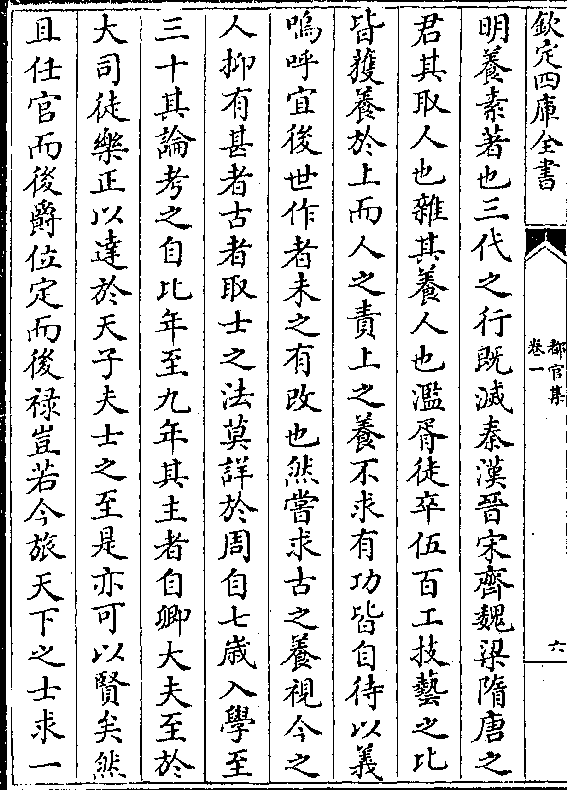 欽定四庫全書
都官集
卷一
六
明養素著也三代之行既滅秦漢晉宋齊魏梁隋唐之
君其取人也雜其養人也濫胥徒卒伍百工技藝之比
皆獲養於上而人之責上之養不求有功皆自待以義
嗚呼宜後世作者未之有改也然嘗求古之養視今之
人抑有甚者古者取士之法莫詳於周自七歲入學至
三十其論考之自比年至九年其主者自卿大夫至於
大司徒樂正以達於天子夫士之至是亦可以賢矣然
且任官而後爵位定而後祿豈若今旅天下之士求一